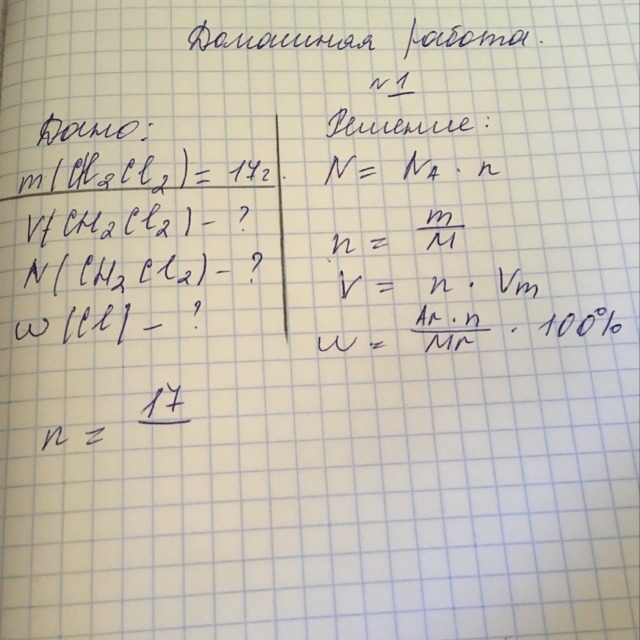 Домашняя работа.
№1
Дано:
m(CH₂Cl₂) = 17г.
V(CH₂Cl₂) - ?
N(CH₂Cl₂) - ?
w(Cl) - ?
Решение:
N = Nᴀ · n
n = m/M
V = n · Vm
w = Ar·n/Mr · 100%
n = 17